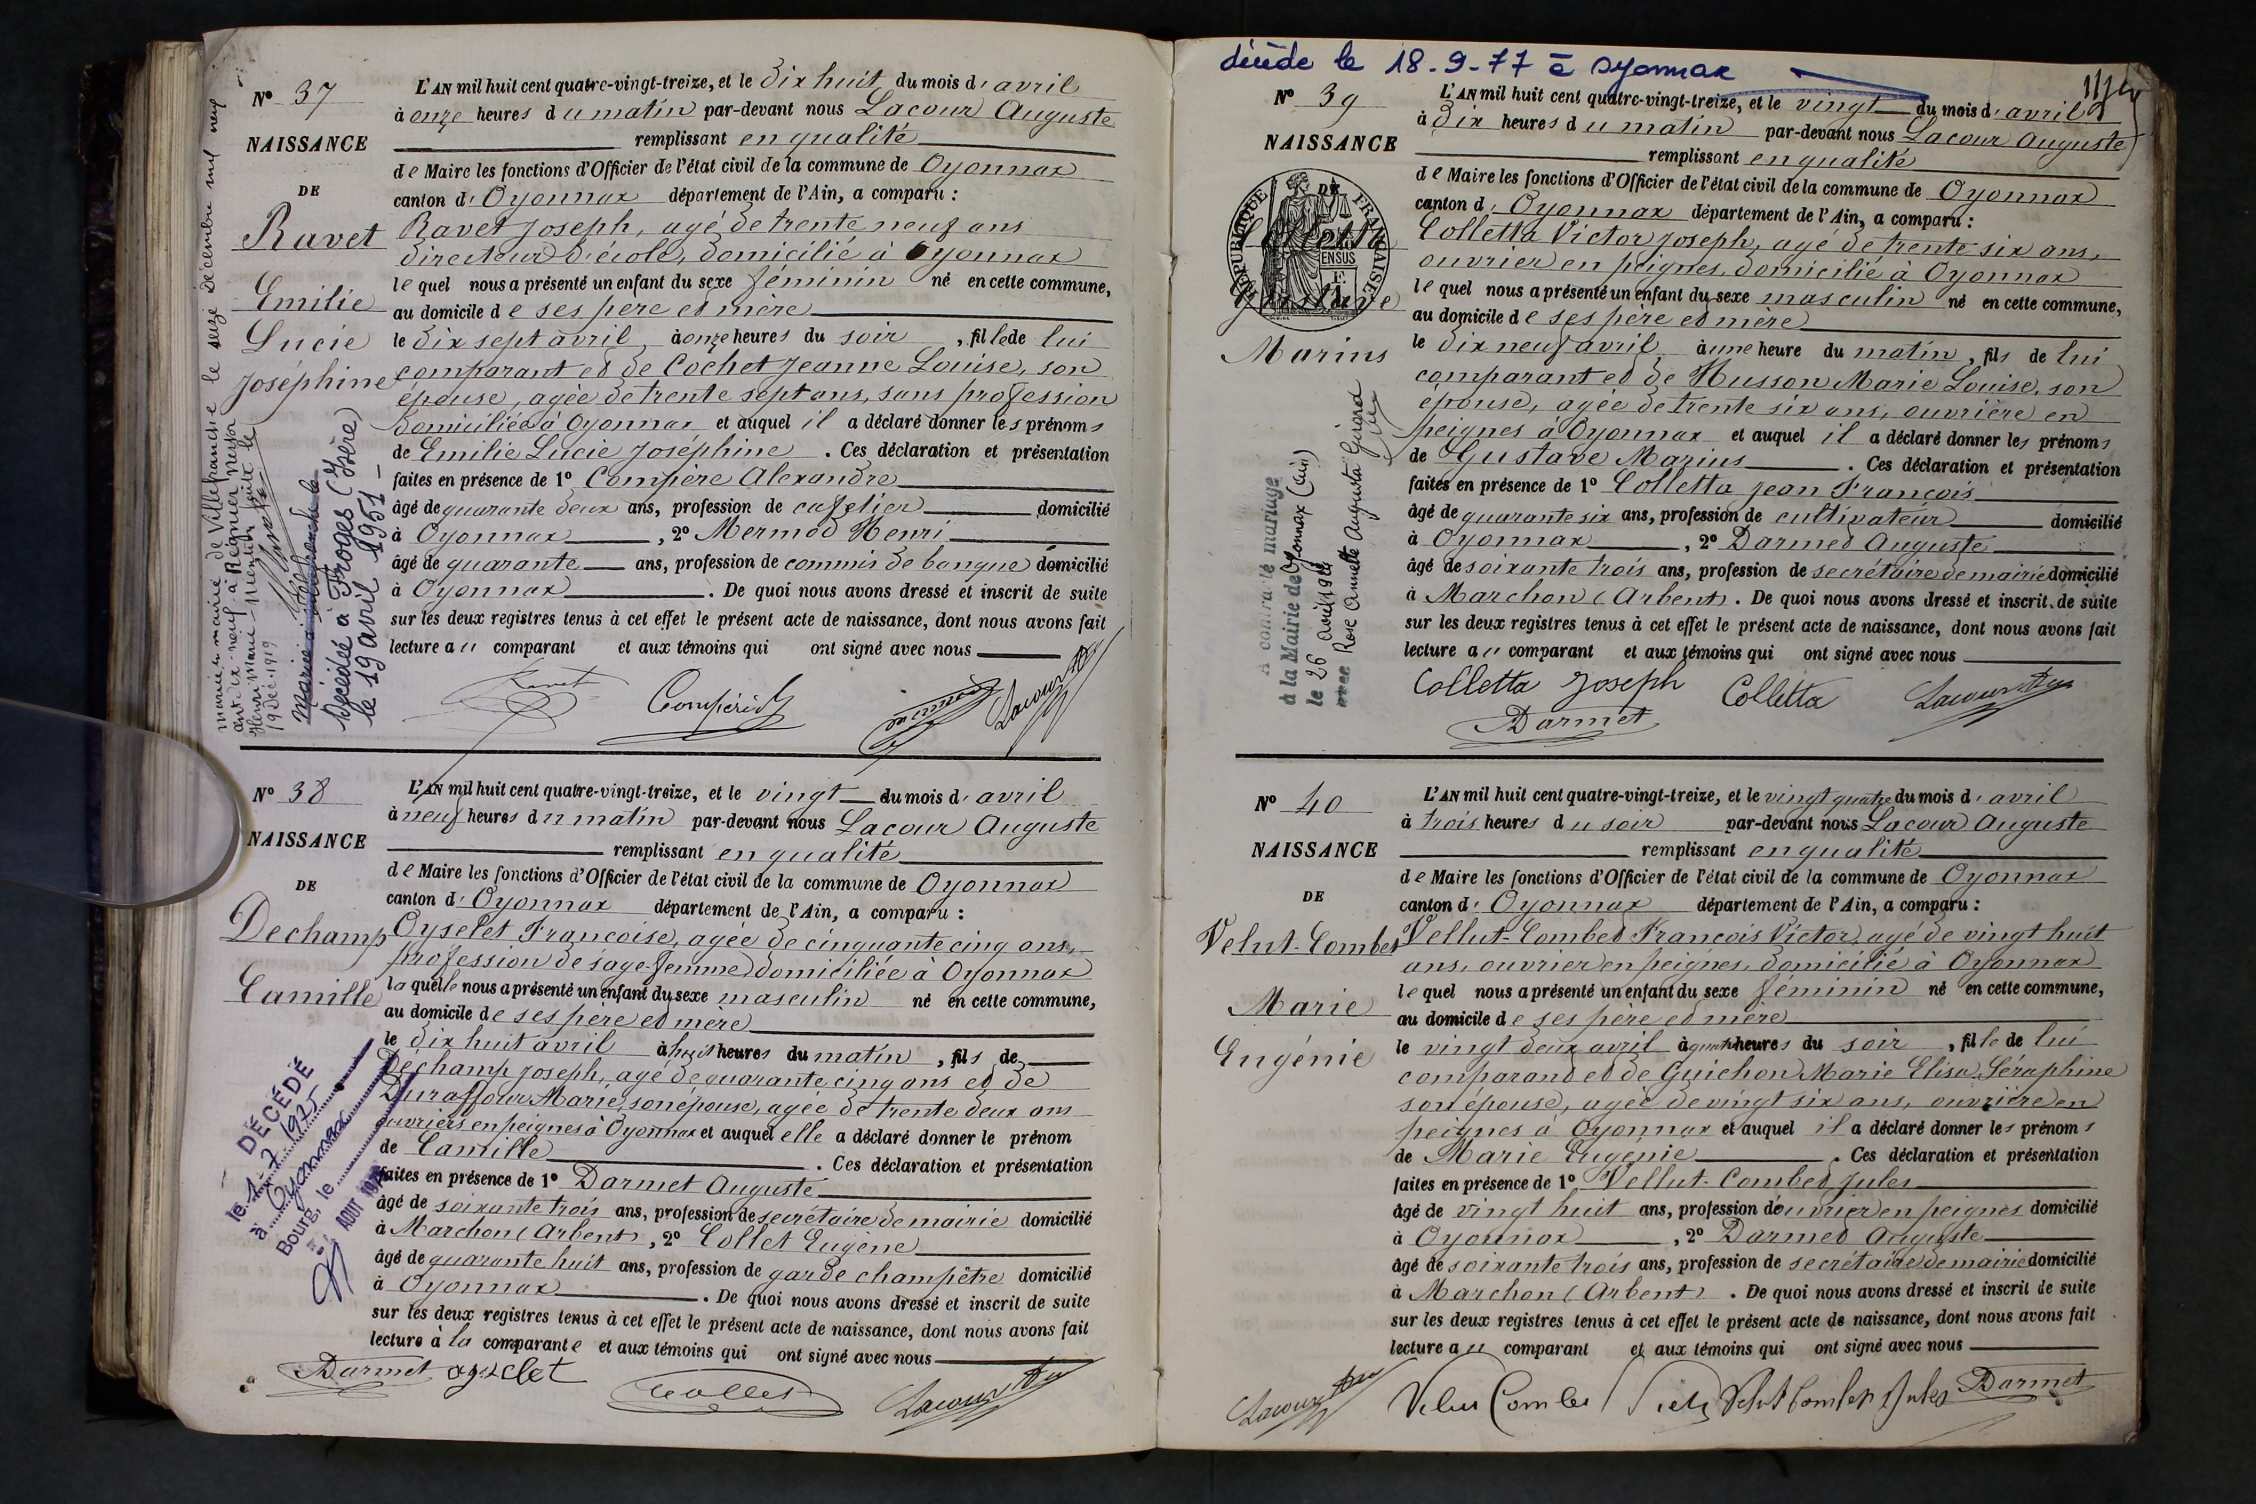 N° 37
NAISSANCE
DE
Ravet
Emilie
Lucie
Joséphine
mariée en mairie de Villefranche le seize décembre mil neuf
cent dix-neuf à Régnier Neyson
Henri Marie Mention faite le
19 Déc. 1919
Mariée à Villefranche le
Décédée à Froges (Isère)
le 19 avril 1951 -
L'AN mil huit cent quatre-vingt-treize, et le dix huit du mois d'avril
à onze heures du matin par-devant nous Lacour Auguste
remplissant en qualité
de Maire les fonctions d'Officier de l'état civil de la commune de Oyonnax
canton d'Oyonnax département de l'Ain, a comparu :
Ravet Joseph, agé de trente neuf ans
directeur d'école, domicilié à Oyonnax
le quel nous a présenté un enfant du sexe féminin né en cette commune,
au domicile de ses père et mère
le dix sept avril, à onze heures du soir, fille de lui
comparant et de Cochet Jeanne Louise, son
épouse, agée de trente sept ans, sans profession
domiciliée à Oyonnax et auquel il a déclaré donner les prénoms
de Emilie Lucie Joséphine. Ces déclaration et présentation
faites en présence de 1° Compère Alexandre
âgé de quarante deux ans, profession de cafetier domicilié
à Oyonnax, 2° Mermod Henri
âgé de quarante ans, profession de commis de banque domicilié
à Oyonnax. De quoi nous avons dressé et inscrit de suite
sur les deux registres tenus à cet effet le présent acte de naissance, dont nous avons fait
lecture au comparant et aux témoins qui ont signé avec nous
Ravet Compère Mermod Lacour
N° 38
NAISSANCE
DE
Dechamp
Camille
DÉCÉDÉ
le 1-7 1925
à Oyonnax
Bourg, le
AOUT
L'AN mil huit cent quatre-vingt-treize, et le vingt du mois d'avril
à neuf heures du matin par-devant nous Lacour Auguste
remplissant en qualité
de Maire les fonctions d'Officier de l'état civil de la commune de Oyonnax
canton d'Oyonnax département de l'Ain, a comparu :
Oyselet Françoise, agée de cinquante cinq ans,
profession de sage-femme domiciliée à Oyonnax
la quelle nous a présenté un enfant du sexe masculin né en cette commune,
au domicile de ses père et mère
le dix huit avril à huit heures du matin, fils de
Déchamp Joseph, agé de quarante cinq ans et de
Duraffour Marie, son épouse, agée de trente deux ans
ouvriers en peignes à Oyonnax et auquel elle a déclaré donner le prénom
de Camille. Ces déclaration et présentation
faites en présence de 1° Darmet Auguste
âgé de soixante trois ans, profession de secrétaire de mairie domicilié
à Marchon (Arbent), 2° Collet Eugène
âgé de quarante huit ans, profession de garde champêtre domicilié
à Oyonnax. De quoi nous avons dressé et inscrit de suite
sur les deux registres tenus à cet effet le présent acte de naissance, dont nous avons fait
lecture à la comparante et aux témoins qui ont signé avec nous
Darmet Oyselet Collet Lacour
décède le 18-9-77 à Oyonnax
N° 39
NAISSANCE
DE
Colletta
Gustave
Marius
RÉPUBLIQUE FRANÇAISE
A contracté mariage
à la Mairie de Oyonnax (Ain)
le 26 août 1914
avec Rose Annette Augusta Girard
L'AN mil huit cent quatre-vingt-treize, et le vingt du mois d'avril
à dix heures du matin par-devant nous Lacour Auguste
remplissant en qualité
de Maire les fonctions d'Officier de l'état civil de la commune de Oyonnax
canton d'Oyonnax département de l'Ain, a comparu :
Colletta Victor Joseph, agé de trente six ans,
ouvrier en peignes, domicilié à Oyonnax
le quel nous a présenté un enfant du sexe masculin né en cette commune,
au domicile de ses père et mère
le dix neuf avril, à une heure du matin, fils de lui
comparant et de Husson Marie Louise, son
épouse, agée de trente six ans, ouvrière en
peignes à Oyonnax et auquel il a déclaré donner les prénoms
de Gustave Marius. Ces déclaration et présentation
faites en présence de 1° Colletta Jean François
âgé de quarante six ans, profession de cultivateur domicilié
à Oyonnax, 2° Darmet Auguste
âgé de soixante trois ans, profession de secrétaire de mairie domicilié
à Marchon (Arbent). De quoi nous avons dressé et inscrit de suite
sur les deux registres tenus à cet effet le présent acte de naissance, dont nous avons fait
lecture au comparant et aux témoins qui ont signé avec nous
Colletta Joseph Colletta Lacour
Darmet
N° 40
NAISSANCE
DE
Velut-Combet
Marie
Eugénie
L'AN mil huit cent quatre-vingt-treize, et le vingt quatre du mois d'avril
à trois heures du soir par-devant nous Lacour Auguste
remplissant en qualité
de Maire les fonctions d'Officier de l'état civil de la commune de Oyonnax
canton d'Oyonnax département de l'Ain, a comparu :
Vellut-Combet François Victor, agé de vingt huit
ans, ouvrier en peignes, domicilié à Oyonnax
le quel nous a présenté un enfant du sexe féminin né en cette commune,
au domicile de ses père et mère
le vingt deux avril à quatre heures du soir, fille de lui
comparant et de Guichon Marie Elisa Séraphine
son épouse, agée de vingt six ans, ouvrière en
peignes à Oyonnax et auquel il a déclaré donner les prénoms
de Marie Eugénie. Ces déclaration et présentation
faites en présence de 1° Vellut-Combet Jules
âgé de vingt huit ans, profession d'ouvrier en peignes domicilié
à Oyonnax, 2° Darmet Auguste
âgé de soixante trois ans, profession de secrétaire de mairie domicilié
à Marchon (Arbent). De quoi nous avons dressé et inscrit de suite
sur les deux registres tenus à cet effet le présent acte de naissance, dont nous avons fait
lecture au comparant et aux témoins qui ont signé avec nous
Lacour Velut Combet Victor Velut Combet Jules Darmet